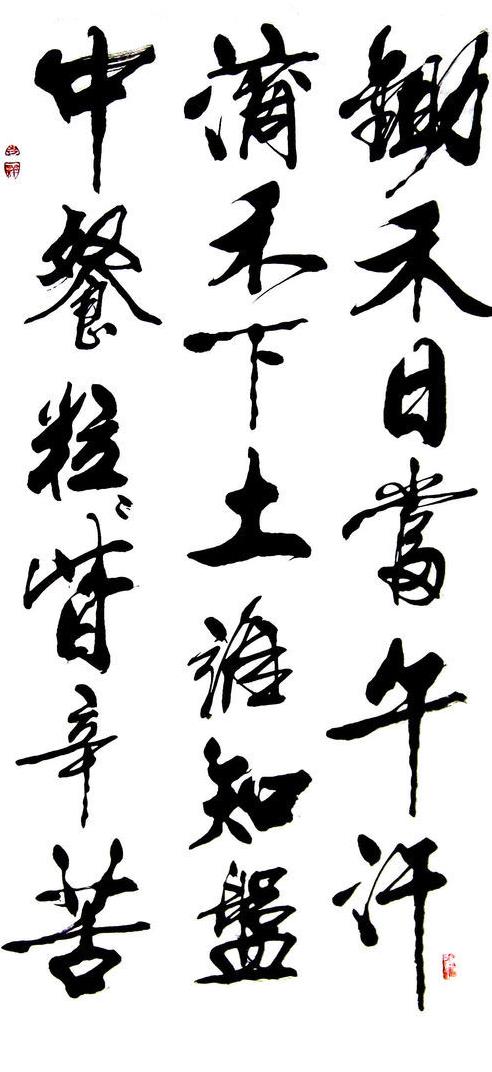 鋤禾日當午汗
滴禾下土誰知盤
中餐粒々皆辛苦